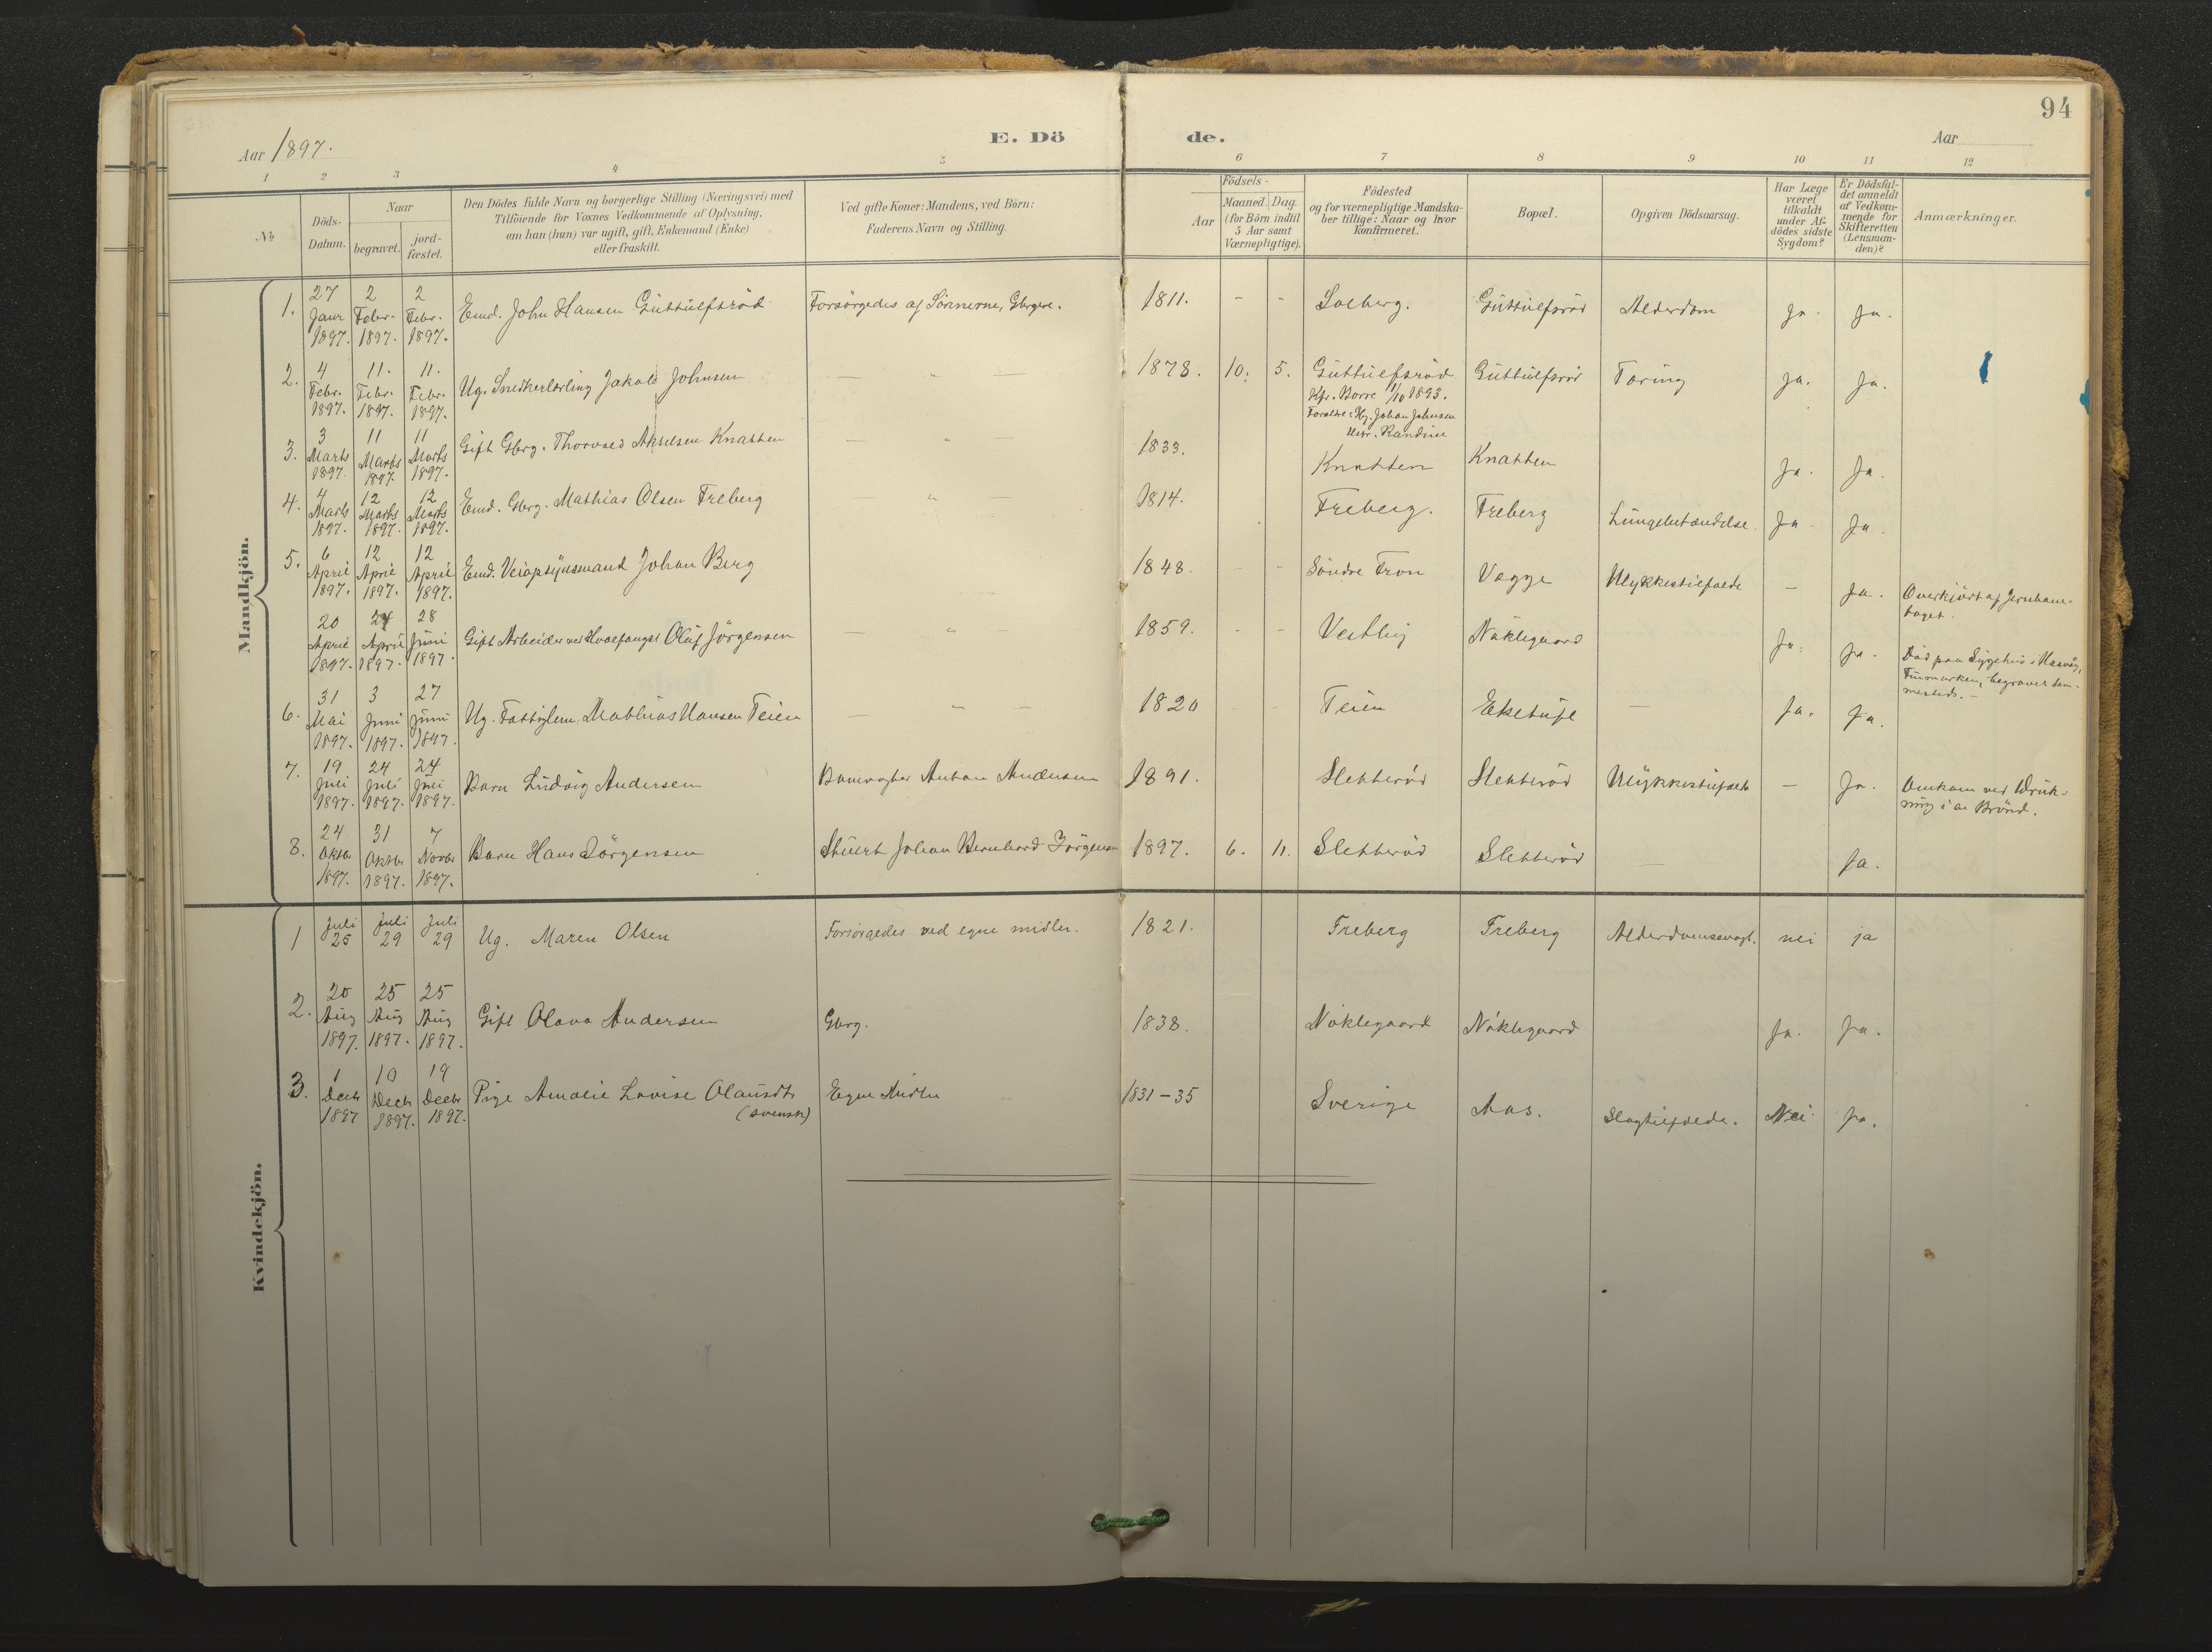 94
Aar 1897.
E. Dö de.
Aar
1 2 3 4 5 6 7 8 9 10 11 12
No
Döds-Datum.
Naar
begravet.
jord-fæstet.
Den Dödes fulde Navn og borgerlige Stilling (Næringsvei) med
Tilföiende for Voxnes Vedkommende af Oplysning,
om han (hun) var ugift, gift, Enkemand (Enke)
eller fraskilt.
Ved gifte Koner: Mandens, ved Börn:
Faderens Navn og Stilling.
Födsels-
Aar
Maaned. Dag.
(for Börn indtil
5 Aar samt
Værnepligtige).
Födested
og for værnepligtige Mandska-
ber tillige: Naar og hvor
konfirmeret.
Bopæl.
Opgiven Dödsaarsag.
Har Læge
været
tilkaldt
under Af-
dödes sidste
Sygdom?
Er Dödsfal-
det anmeldt
af Vedkom-
mende for
Skifteretten
(Lensman-
den)?
Anmærkninger.
Mandkjön.
1. 27 Janr 1897. 2 Febr. 1897. 2 Febr. 1897. Emd. John Hansen Guttulfsröd Forsörgedes af Sönnerne, Gbrgere. 1811. - - Solberg. Guttulfsröd Alderdom Ja. Ja.
2. 4 Febr. 1897. 11. Febr. 1897. 11. Febr. 1897. Ug. Snedkerlærling Jakob Johnsen — " — 1878. 10. 5. Guttulfsröd Guttulfsröd Tæring Ja. Ja.
Kfr. Borre 1/10 1893.
Forældre: Hg. Johan Johnsen
Randine
3. 3 Marts 1897. 11 Marts 1897. 11 Marts 1897. Gift Gbrg. Thorvald Akselsen Knatten — " — 1833. Knatten Knatten Ja. Ja.
4. 4 Marts 1897. 12 Marts 1897. 12 Marts 1897. Emd. Gbrg. Mathias Olsen Freberg " — 1814. Freberg. Freberg Lungebetændelse. Ja. Ja.
5. 6 April 1897. 12 April 1897. 12 April 1897. Emd. Veiopsynsmand Johan Berg 1848. - - Söndre Tron Vegge Ulykkestilfælde — Ja. Overkjört af Jernbane-
toget.
20 April 1897. 24 April 1897. 28 Juni 1897. Gift Arbeider ved Hvalfanget Oluf Jörgensen — " — 1859. - - Vestby Nöklegaard Ja. Ja. Död paa Sygehus i Hasvåg,
Finmarken, begravet sam-
mesteds. —
6. 31 Mai 1897. 3 Juni 1897. 27 Juni 1897. Ug. Fattiglem Mathias Hansen Teien — — — 1820 - - Teien Eketuft — Ja. Ja.
7. 19 Juli 1897. 24 Juli 1897. 24 Juli 1897. Barn Ludvig Andersen Banevogter Anton Andersen 1891. Sletteröd Sletteröd Ulykkestilfælde — Ja. Omkom ved Druk-
ning i en Brönd.
8. 24. Oktbr 1897. 31 Oktbr 1897. 7 Novbr 1897. Barn Hans Jörgensen Stuert Johan Bernhard Jörgensen 1897. 6. 11. Sletteröd Sletteröd — Ja.
Kvindekjön.
1 Juli 25 Juli 29 Juli 29 Ug. Maren Olsen Forsörgedes ved egne midler. 1821. Freberg Freberg Alderdomssvagh. nei ja
2. 20 Aug 1897. 25 Aug 1897. 25 Aug 1897. Gift Olava Andersen Gbrg. 1838. Nöklegaard Nöklegaard Ja. Ja.
3. 1 Decbr 1897 10 Decbr 1897. 19 Decbr 1897. Pige Amalie Lovise Olausdtr (svensk) Egne Midler 1831-35 Sverige Aas. Slagtilfælde. Nei. Ja.